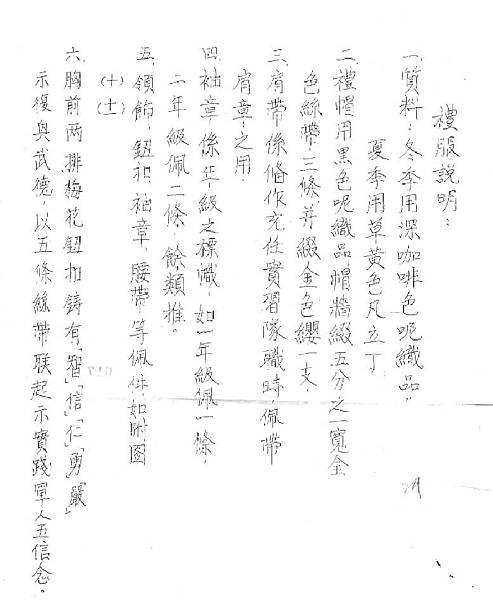 禮服說明：
一、質料：冬季用深咖啡色呢織品。
夏季用草黃色凡立丁
二、禮帽用黑色呢織品、帽牆綴五分之一寬金
色絲帶、三條并綴金色纓一支、
三、肩帶係偹作充任實習隊職時、佩帶
肩章之用、
四、袖章係年級之標幟、如一年級佩一條、
二年級佩二條、餘類推。
五、領飾、鈕扣、袖章、腰帶等佩件、如附图
(十)(士)
六、胸前两排梅花鈕扣鋳有「智」「信」「仁」「勇」「嚴」
示復興武德、以五條絲帶联起示實踐軍人五信念。